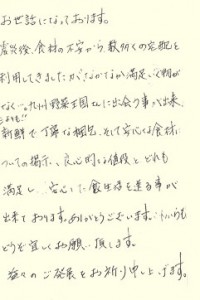 お世話になっております。
震災後、食材の不安から、数多くの宅配を
利用してきましたが、なかなか満足いく物が
なく…。九州野菜王国さんに出会う事が出来、
とても!!
新鮮で丁寧な梱包、そして安心な食材
ついての掲示、良心的な値段とどれも
満足し、安心した食生活を送る事が
出来ております。ありがとうございます。これからも
どうぞ宜しくお願い致します。
益々のご発展をお祈り申し上げます。